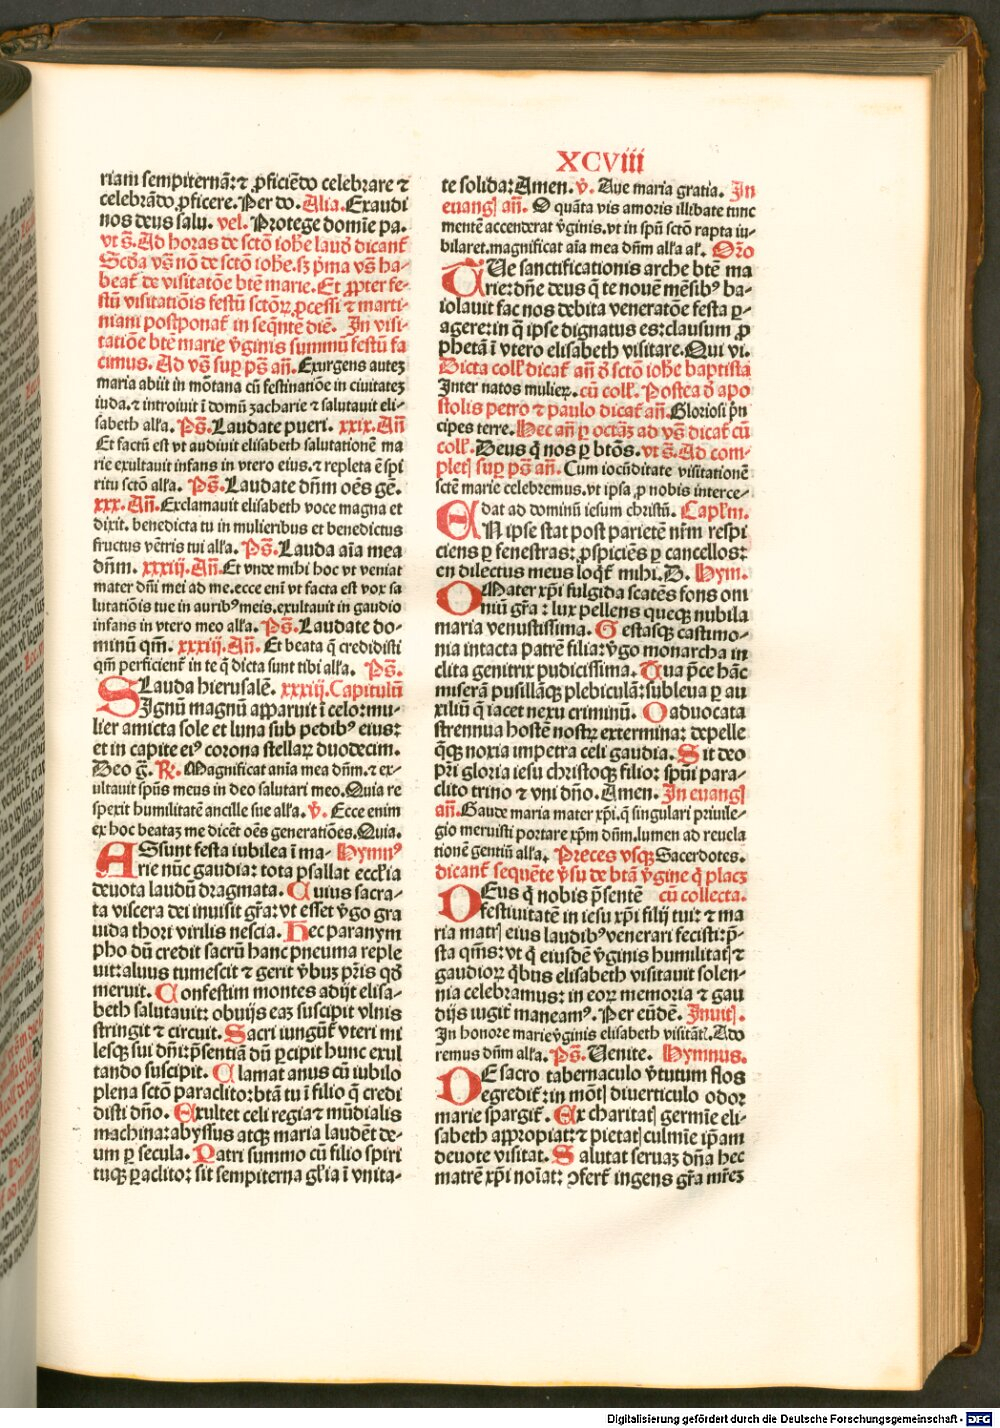 XCViii
riam sempiternã: ⁊ ꝓficiẽdo celebrare ⁊
celebrãdo ꝓficere. Per do. Alia. Exaudi
nos deus salu. vel. Protege domĩe pa.
vt s̃. Ad horas de sctõ iohe laud̓ dicant̃
Scd̓a vs̃ nõ de sctõ iohe. sꝫ p̃ma vs̃ ha-
beat̃ de visitatõe btẽ marie. Et ꝓpter fe-
stũ visitatiõis festũ sctõꝝ ꝓcessi ⁊ marti-
niani postponat̃ in seq̃nte diẽ. In visi-
tatiõe btẽ marie v̓ginis summũ festũ fa
cimus. Ad vs̃ suꝑ ps̃ añ. Exurgens auteꝫ
maria abiit in mõtana cũ festinatiõe in ciuitateꝫ
iuda. ⁊ introiuit ĩ domũ zacharie ⁊ salutauit eli-
sabeth alľa. Ps̃. Laudate pueri. xxix. Añ
Et factũ est vt audiuit elisabeth salutationẽ ma
rie exultauit infans in vtero eius. ⁊ repleta ẽ spi
ritu sctõ alľa. Ps̃. Laudate dñm oẽs gẽ.
xxx. Añ. Exclamauit elisabeth voce magna et
dixit. benedicta tu in mulieribus et benedictus
fructus vẽtris tui alľa. Ps̃. Lauda aĩa mea
dñm. xxxij. Añ. Et vnde mihi hoc vt veniat
mater dñi mei ad me. ecce eni vt facta est vox sa
lutatiõis tue in auribꝰ meis. exultauit in gaudio
infans in vtero meo alľa. Ps̃. Laudate do-
minũ qm̃. xxxiij. Añ. Et beata q̃ credidisti
qm̃ perficient̃ in te q̃ dicta sunt tibi alľa. Ps̃.
Lauda hierusalẽ. xxxiij. Capitulũ
SIgnũ magnũ apparuit ĩ celo: mu-
lier amicta sole et luna sub pedibꝰ eius:
et in capite eiꝰ corona stellaꝝ duodecim.
Deo g̃. R̃. Magnificat anĩa mea dñm. ⁊ ex-
ultauit spũs meus in deo salutari meo. Quia re
spexit humilitatẽ ancille sue alľa. v̓. Ecce enim
ex hoc beataꝫ me dicẽt oẽs generatiões. Quia.
ASsunt festa iubilea ĩ ma- Hymnꝰ
rie nũc gaudia: tota psallat eccľia
deuota laudũ dragmata. Cuius sacra-
ta viscera dei inuisit gr̃a: vt esset v̓go gra
uida thori virilis nescia. Hec paranym
pho dũ credit sacrũ hanc pneuma reple
uit: aluus tumescit ⁊ gerit v̓buꝫ pr̃is qd̓
meruit. Confestim montes adijt elisa-
beth salutauit: obuijs eaꝫ suscipit vlnis
stringit ⁊ circuit. Sacri iungũt̃ vteri mi
lesqꝫ sui dñi: p̃sentiã dũ ꝑcipit hunc exul
tando suscipit. Clamat anus cũ iubilo
plena sctõ paraclito: btã tu ĩ filio q̃ credi
disti dño. Exultet celi regia ⁊ mũdialis
machina: abyssus atqꝫ maria laudẽt de-
um ꝑ secula. Patri summo cũ filio spiri
tuqꝫ ꝑaclito: sit sempiterna gľia ĩ vnita-
te solida: Amen. v̓. Aue maria gratia. In
euangꝭ añ. O quãta vis amoris illibate tunc
mentẽ accenderat v̓ginis. vt in spũ sctõ rapta iu-
bilaret. magnificat aĩa mea dñm alľa aľ. Oro
AUe sanctificationis arche btẽ ma
rie: dñe deus q̃ te nouẽ mẽsibꝰ ba-
iolauit fac nos debita veneratõe festa ꝑ-
agere: in q̃ ipse dignatus es: clausum ꝓ
phetã ĩ vtero elisabeth visitare. Qui vi.
Dicta colľ dicat̃ añ ð sctõ iohe baptista
Inter natos mulieꝝ. cũ colľ. Postea ð apo
stolis petro ⁊ paulo dicat̃ añ. Gloriosi p̃n
cipes terre. Hec añ ꝑ octãs ad vs̃ dicat̃ cũ
colľ. Deus q̃ nos ꝑ btõs. vt s̃. Ad com-
pletꝭ suꝑ ps̃ añ. Cum iocũditate visitationẽ
sctẽ marie celebremus. vt ipsa ꝓ nobis interce-
dat ad dominũ iesum christũ. Capľm.
EN ipse stat post parietẽ nr̃m respi
ciens ꝑ fenestras: ꝓspiciẽs ꝑ cancellos:
en dilectus meus loq̃t̃ mihi. D. Hym.
OMater xp̃i fulgida scatẽs fons om
niũ gr̃a: lux pellens queqꝫ nubila
maria venustissima. Gestasqꝫ castimo-
nia intacta patrẽ filia: v̓go monarcha in
clita genitrix pudicissima. Tua p̃ce hãc
miserã pusillãqꝫ plebiculã: subleua ꝑ au
xiliũ q̃ iacet nexu criminũ. O aduocata
strennua hostẽ nostꝝ extermina: depelle
q̃qꝫ noxia impetra celi gaudia. Sit deo
pr̃i gloria iesu christoqꝫ filio: spũi para-
clito trino ⁊ vni dño. Amen. In euangꝭ
añ. Gaude maria mater xp̃i. q̃ singulari priuile-
gio meruisti portare xp̃m dñm. lumen ad reuela
tionẽ gentiũ alľa. Preces vsqꝫ Sacerdotes.
dicant̃ sequẽte v̓su de btã v̓gine q̃ placꝫ
DEus q̃ nobis p̃sentẽ cũ collecta.
festiuitatẽ in iesu xp̃i filij tui: ⁊ ma
ria matrꝭ eius laudibꝰ venerari fecisti: p̃-
sta qm̃s: vt q̃ eiusdẽ v̓ginis humilitatꝭ ⁊
gaudioꝝ q̃bus elisabeth visitauit solen-
nia celebramus: in eoꝝ memoria ⁊ gau
dijs iugit̃ maneamꝰ. Per eũdẽ. Inuitꝭ.
In honore marie v̓ginis elisabeth visitãtꝭ. Ado
remus dñm alľa. Ps̃. Uenite. Hymnus.
DE sacro tabernaculo v̓tutum flos
egredit̃: in mõtꝭ diuerticulo odor
marie spargit̃. Ex charitatꝭ germĩe eli-
sabeth appropiat: ⁊ pietatꝭ culmĩe ip̃am
deuote visitat. Salutat seruaꝫ dña hec
matrẽ xp̃i noĩat: ↄfert̃ ingens gr̃a mr̃eꝫ
Digitalisierung gefördert durch die Deutsche Forschungsgemeinschaft - DFG